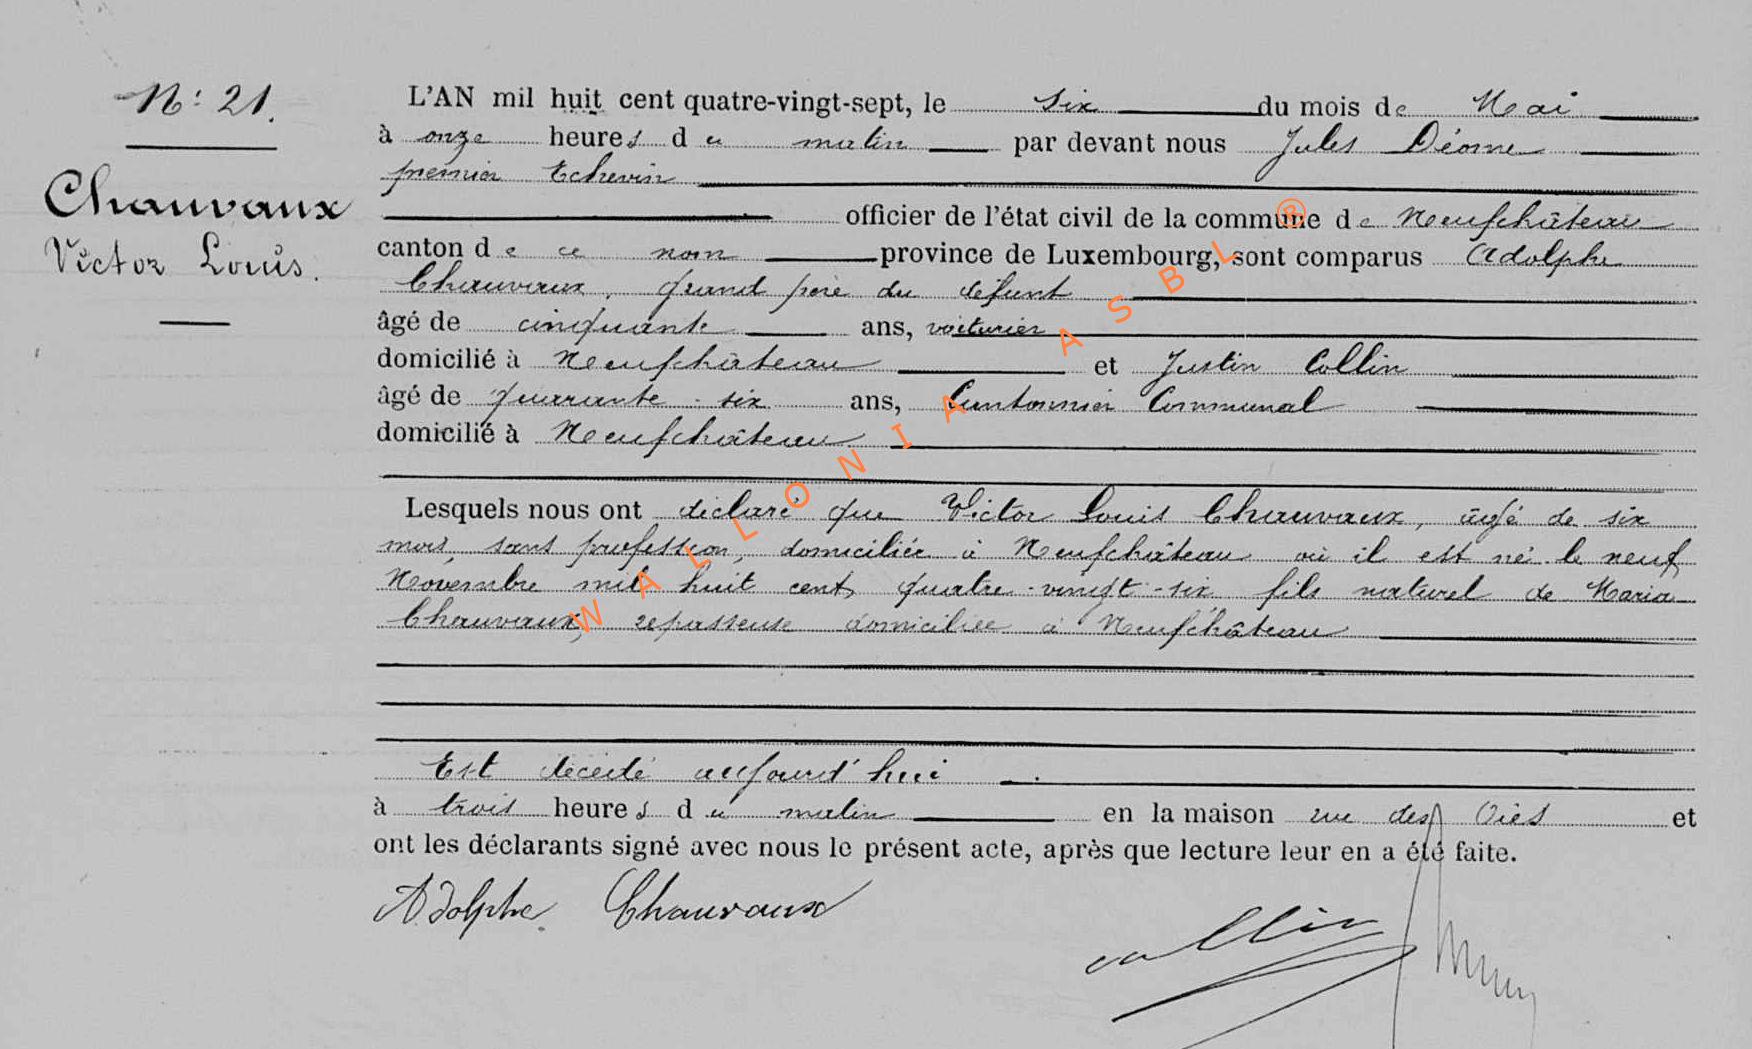 N: 21.
Chauvaux
Victor Louis.
L'AN mil huit cent quatre-vingt-sept, le six du mois de Mai
à onze heures du matin par devant nous Jules Déome
premier Echevin
officier de l'état civil de la commune de Neufchâteau
canton de ce nom province de Luxembourg, sont comparus Adolphe
Chauvaux, grand père du défunt
âgé de cinquante ans, voiturier
domicilié à Neufchâteau et Justin Collin
âgé de quarante-six ans, Cantonnier Communal
domicilié à Neufchâteau
Lesquels nous ont déclaré que Victor Louis Chauvaux, âgé de six
mois, sans profession, domiciliée à Neufchâteau où il est né le neuf
Novembre mil huit cent quatre-vingt-six fils naturel de Maria
Chauvaux, repasseuse domiciliée à Neufchâteau
Est décédé aujourd'hui
à trois heures du matin en la maison rue des Oies et
ont les déclarants signé avec nous le présent acte, après que lecture leur en a été faite.
Adolphe Chauvaux
collin
WALLONIA ASBL ®